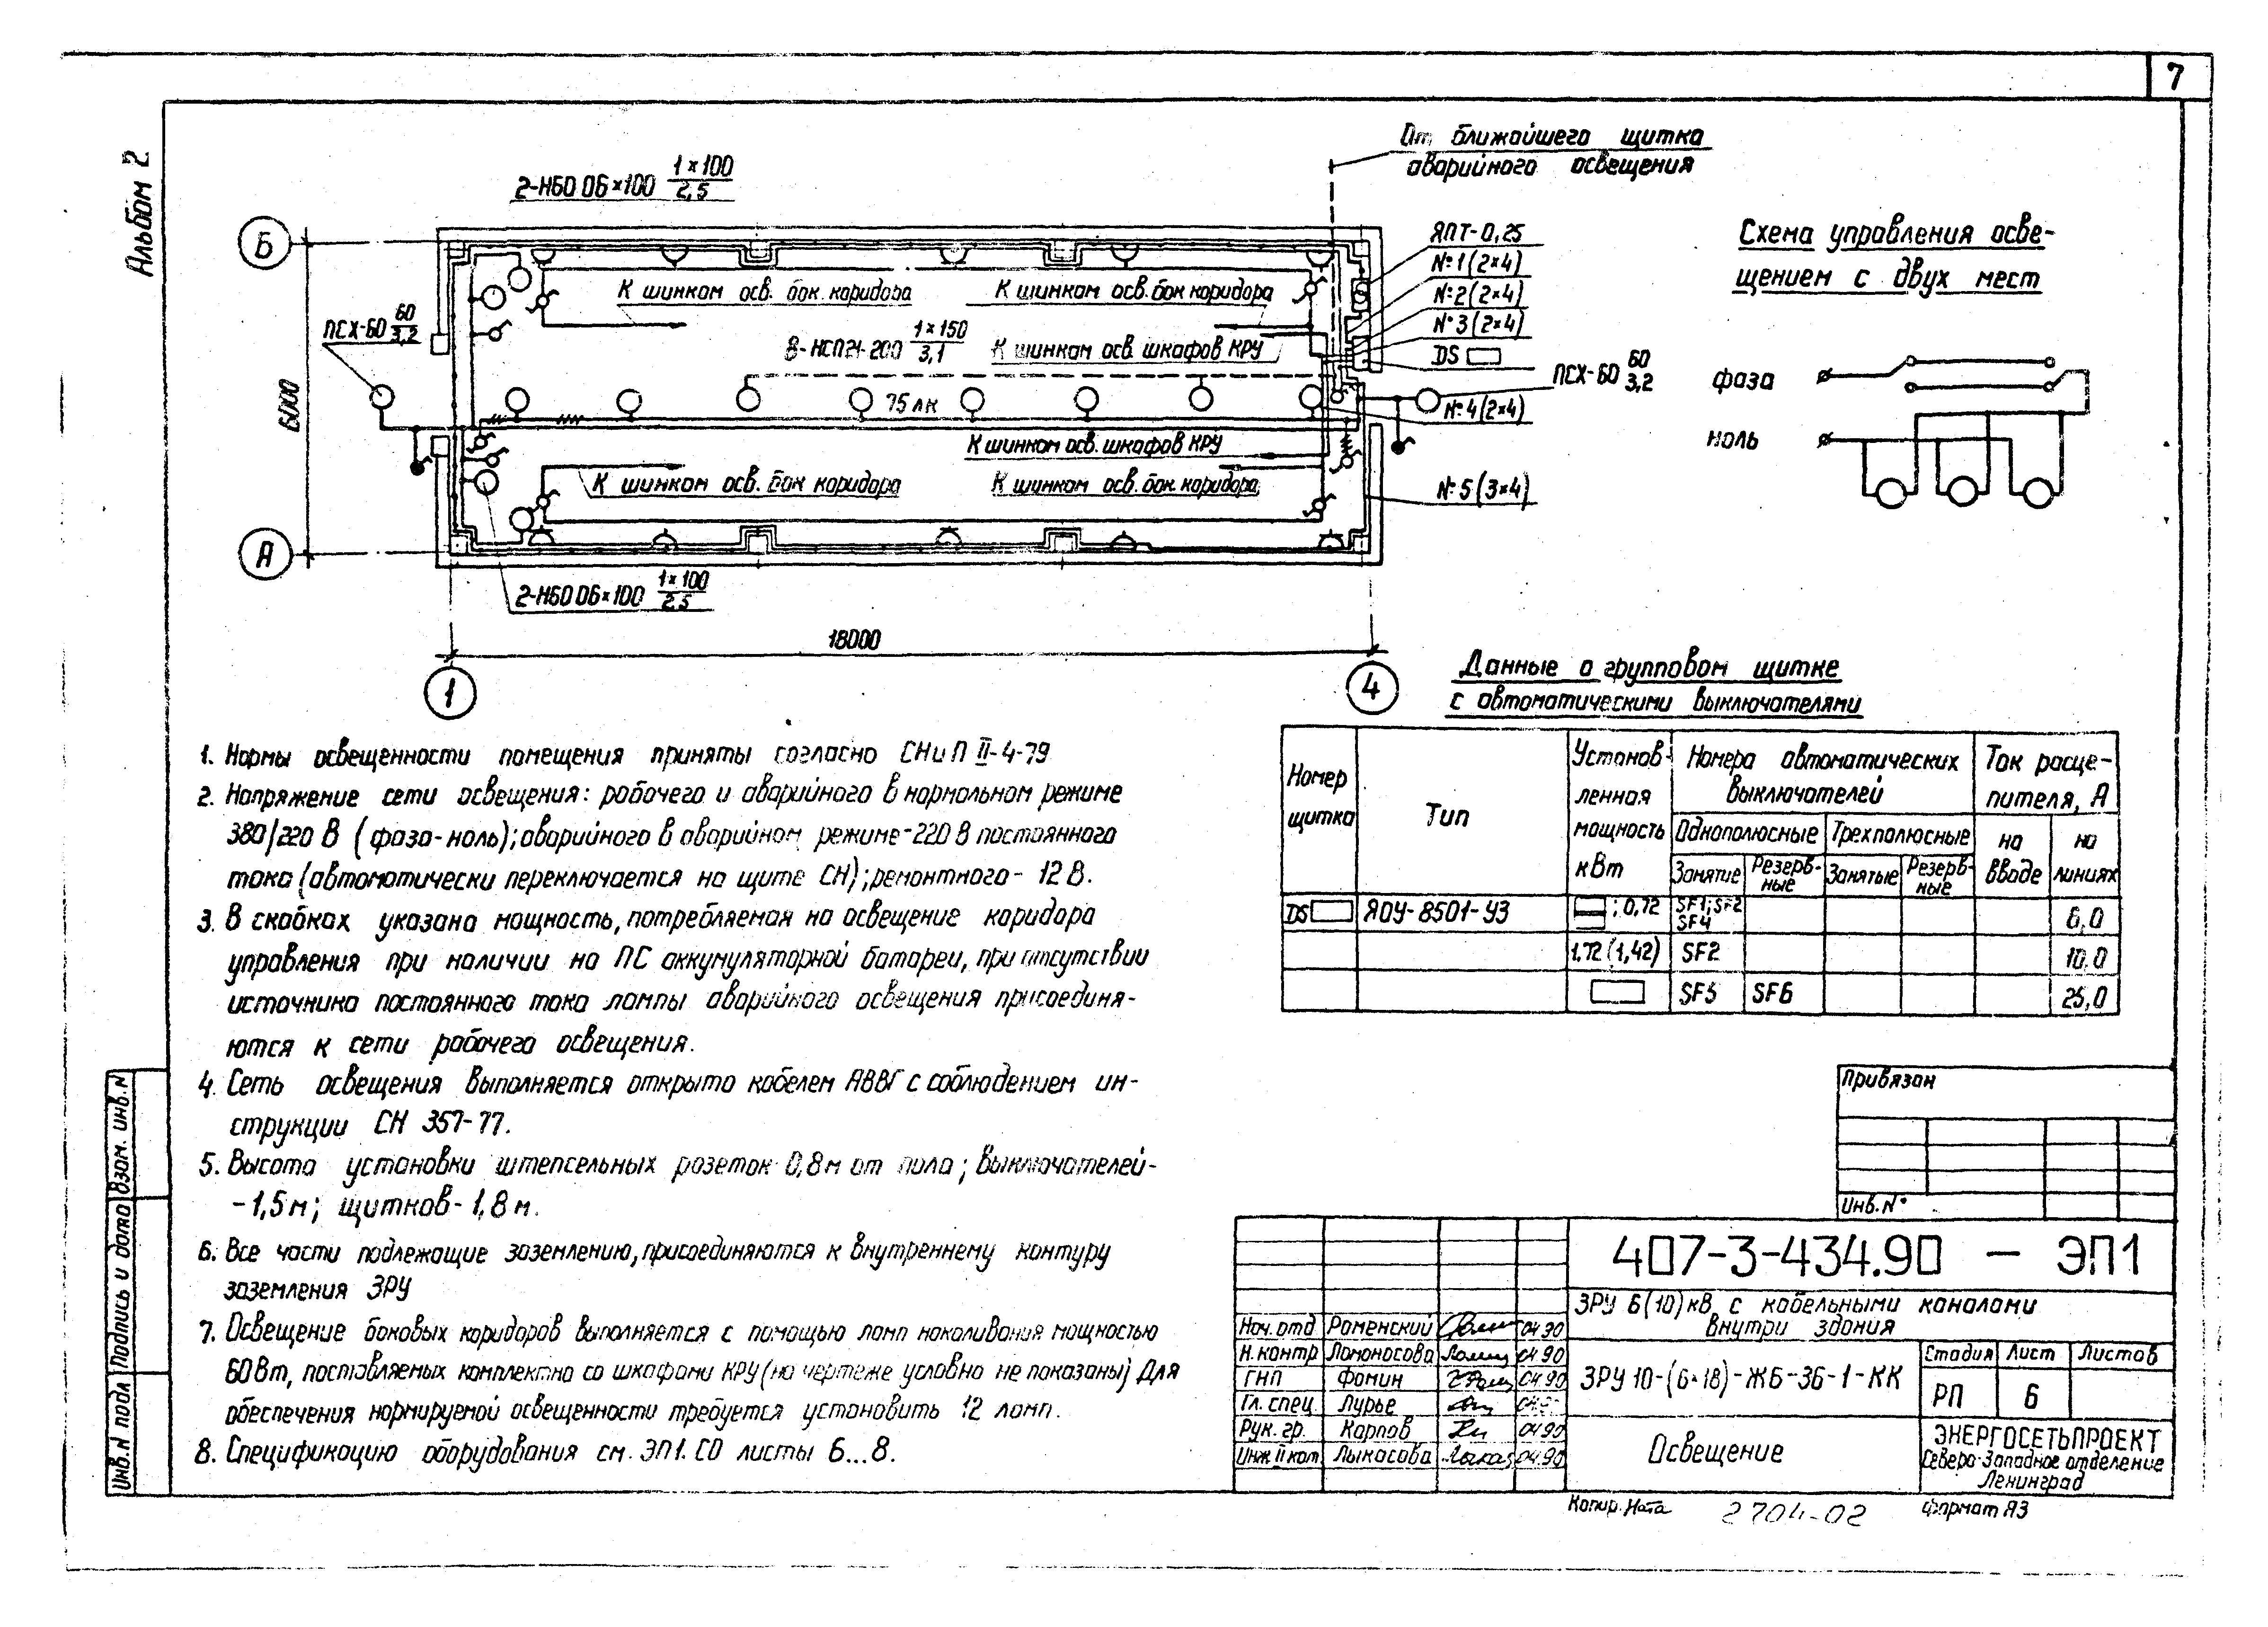 7
Альбом 2
От ближайшего щитка
аварийного освещения
2-НБО 06×100 1×100
2,5
Б
ЯПТ-0,25
№1 (2×4)
№2 (2×4)
№3 (2×4)
DS
К шинкам осв. бок. коридора
К шинкам осв. бок. коридора
ПСХ-60 60
3,2
8-НСП21-200 1×150
3,1
К шинкам осв. шкафов КРУ
ПСХ-60 60
3,2
6000
75 лк
№4 (2×4)
К шинкам осв. шкафов КРУ
К шинкам осв. бок коридора
К шинкам осв. бок. коридора
№5 (3×4)
А
2-НБО 06×100 1×100
2,5
18000
1
4
Схема управления осве-
щением с двух мест
фаза
ноль
Данные о групповом щитке
с автоматическими выключателями
Номер щитка
Тип
Установ-
ленная
мощность
кВт
Номера автоматических
выключателей
Однополюсные
Трехполюсные
Занятие
Резерв-
ные
Занятые
Резерв-
ные
Ток расце-
пителя, А
на вводе
на линиях
DS ЯОУ-8501-У3 ; 0,72 SF1; SF2 6,0
SF4
1,72 (1,42) SF2 10,0
SF5 SF6 25,0
1. Нормы освещенности помещения приняты согласно СНиП II-4-79
2. Напряжение сети освещения: рабочего и аварийного в нормальном режиме
380/220 В (фаза-ноль); аварийного в аварийном режиме-220 В постоянного
тока (автоматически переключается на щите СН); ремонтного- 12 В.
3. В скобках указана мощность, потребляемая на освещение коридора
управления при наличии на ПС аккумуляторной батареи, при отсутствии
источника постоянного тока лампы аварийного освещения присоединя-
ются к сети рабочего освещения.
4. Сеть освещения выполняется открыто кабелем АВВГ с соблюдением ин-
струкции СН 357-77.
5. Высота установки штепсельных розеток 0,8 м от пола; выключателей-
-1,5 м; щитков-1,8 м.
6. Все части подлежащие заземлению, присоединяются к внутреннему контуру
заземления ЗРУ
7. Освещение боковых коридоров выполняется с помощью ламп накаливания мощностью
60 Вт, поставляемых комплектно со шкафами КРУ (на чертеже условно не показаны) Для
обеспечения нормируемой освещенности требуется установить 12 ламп.
8. Спецификацию оборудования см. ЭП1. СО листы 6...8.
Привязан
Инв. №
407-3-434.90 - ЭП1
ЗРУ 6(10) кВ с кабельными каналами
внутри здания
Нач. отд Роменский 04 90
Н. контр Ломоносова 04 90
ГНП Фомин 04 90
Гл. спец. Лурье
Рук. гр. Карпов 04 90
Инж II кат Лыкасова 04.90
ЗРУ 10-(6×18)-ЖБ-36-1-КК
Стадия Лист Листов
РП 6
Освещение
ЭНЕРГОСЕТЬПРОЕКТ
Северо-Западное отделение
Ленинград
Копир. Ната
2704-02
Формат А3
Инв. N подл
Подпись и дата
Взам. инв. N